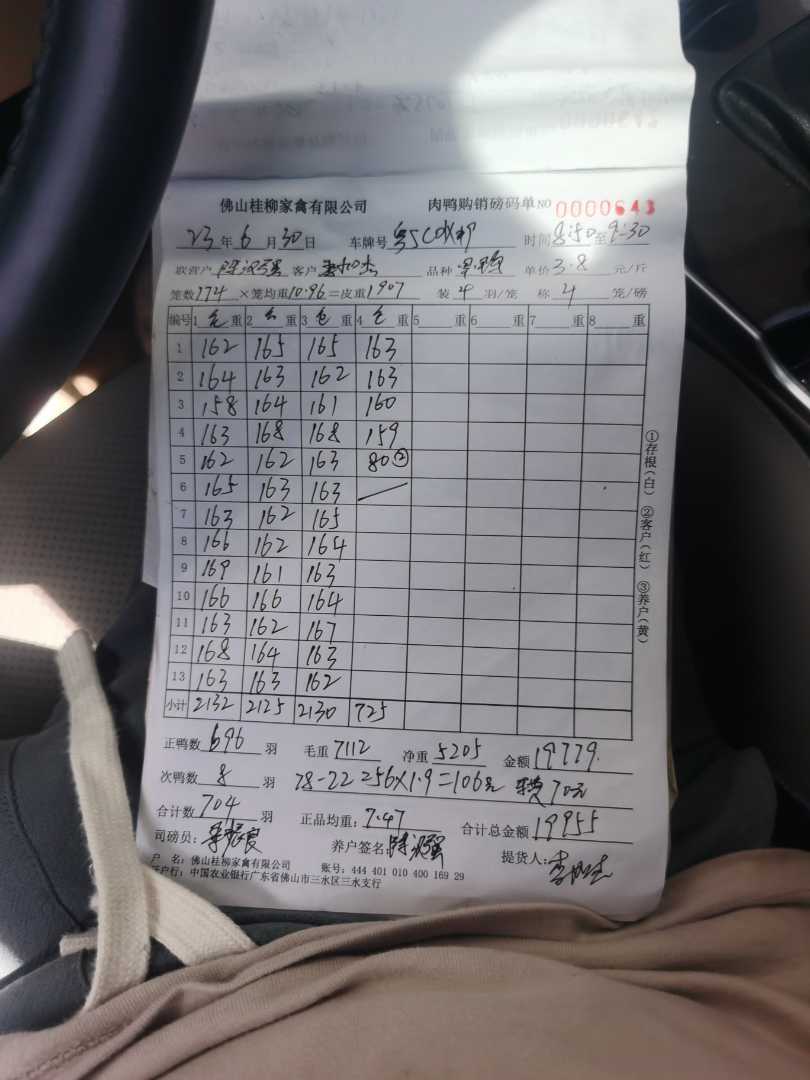 佛山桂柳家禽有限公司 肉鸭购销磅码单 NO 0000643
23年6月30日 车牌号 时间8:50至9:30
联营户 客户 品种 单价3.8元/斤
笼数174×笼均重10.96=皮重1907 装4羽/笼 称4笼/磅
编号 1仓重 2仓重 3仓重 4仓重 5重 6重 7重 8重
1 162 165 165 163
2 164 163 162 163
3 158 164 161 160
4 163 168 168 159
5 162 162 163 80②
6 165 163 163
7 163 162 165
8 166 162 164
9 169 161 163
10 166 166 164
11 163 162 167
12 168 164 163
13 163 163 162
小计 2132 2125 2130 725
①存根(白) ②客户(红) ③养户(黄)
正鸭数696羽 毛重7112 净重5205 金额19779.
次鸭数8羽 78-22=56×1.9=106元 车费70元
合计数704羽 正品均重:7.47 合计总金额19955
司磅员: 养户签名 提货人:
户 名:佛山桂柳家禽有限公司 账号:444 401 010 400 169 29
开户行:中国农业银行广东省佛山市三水区三水支行